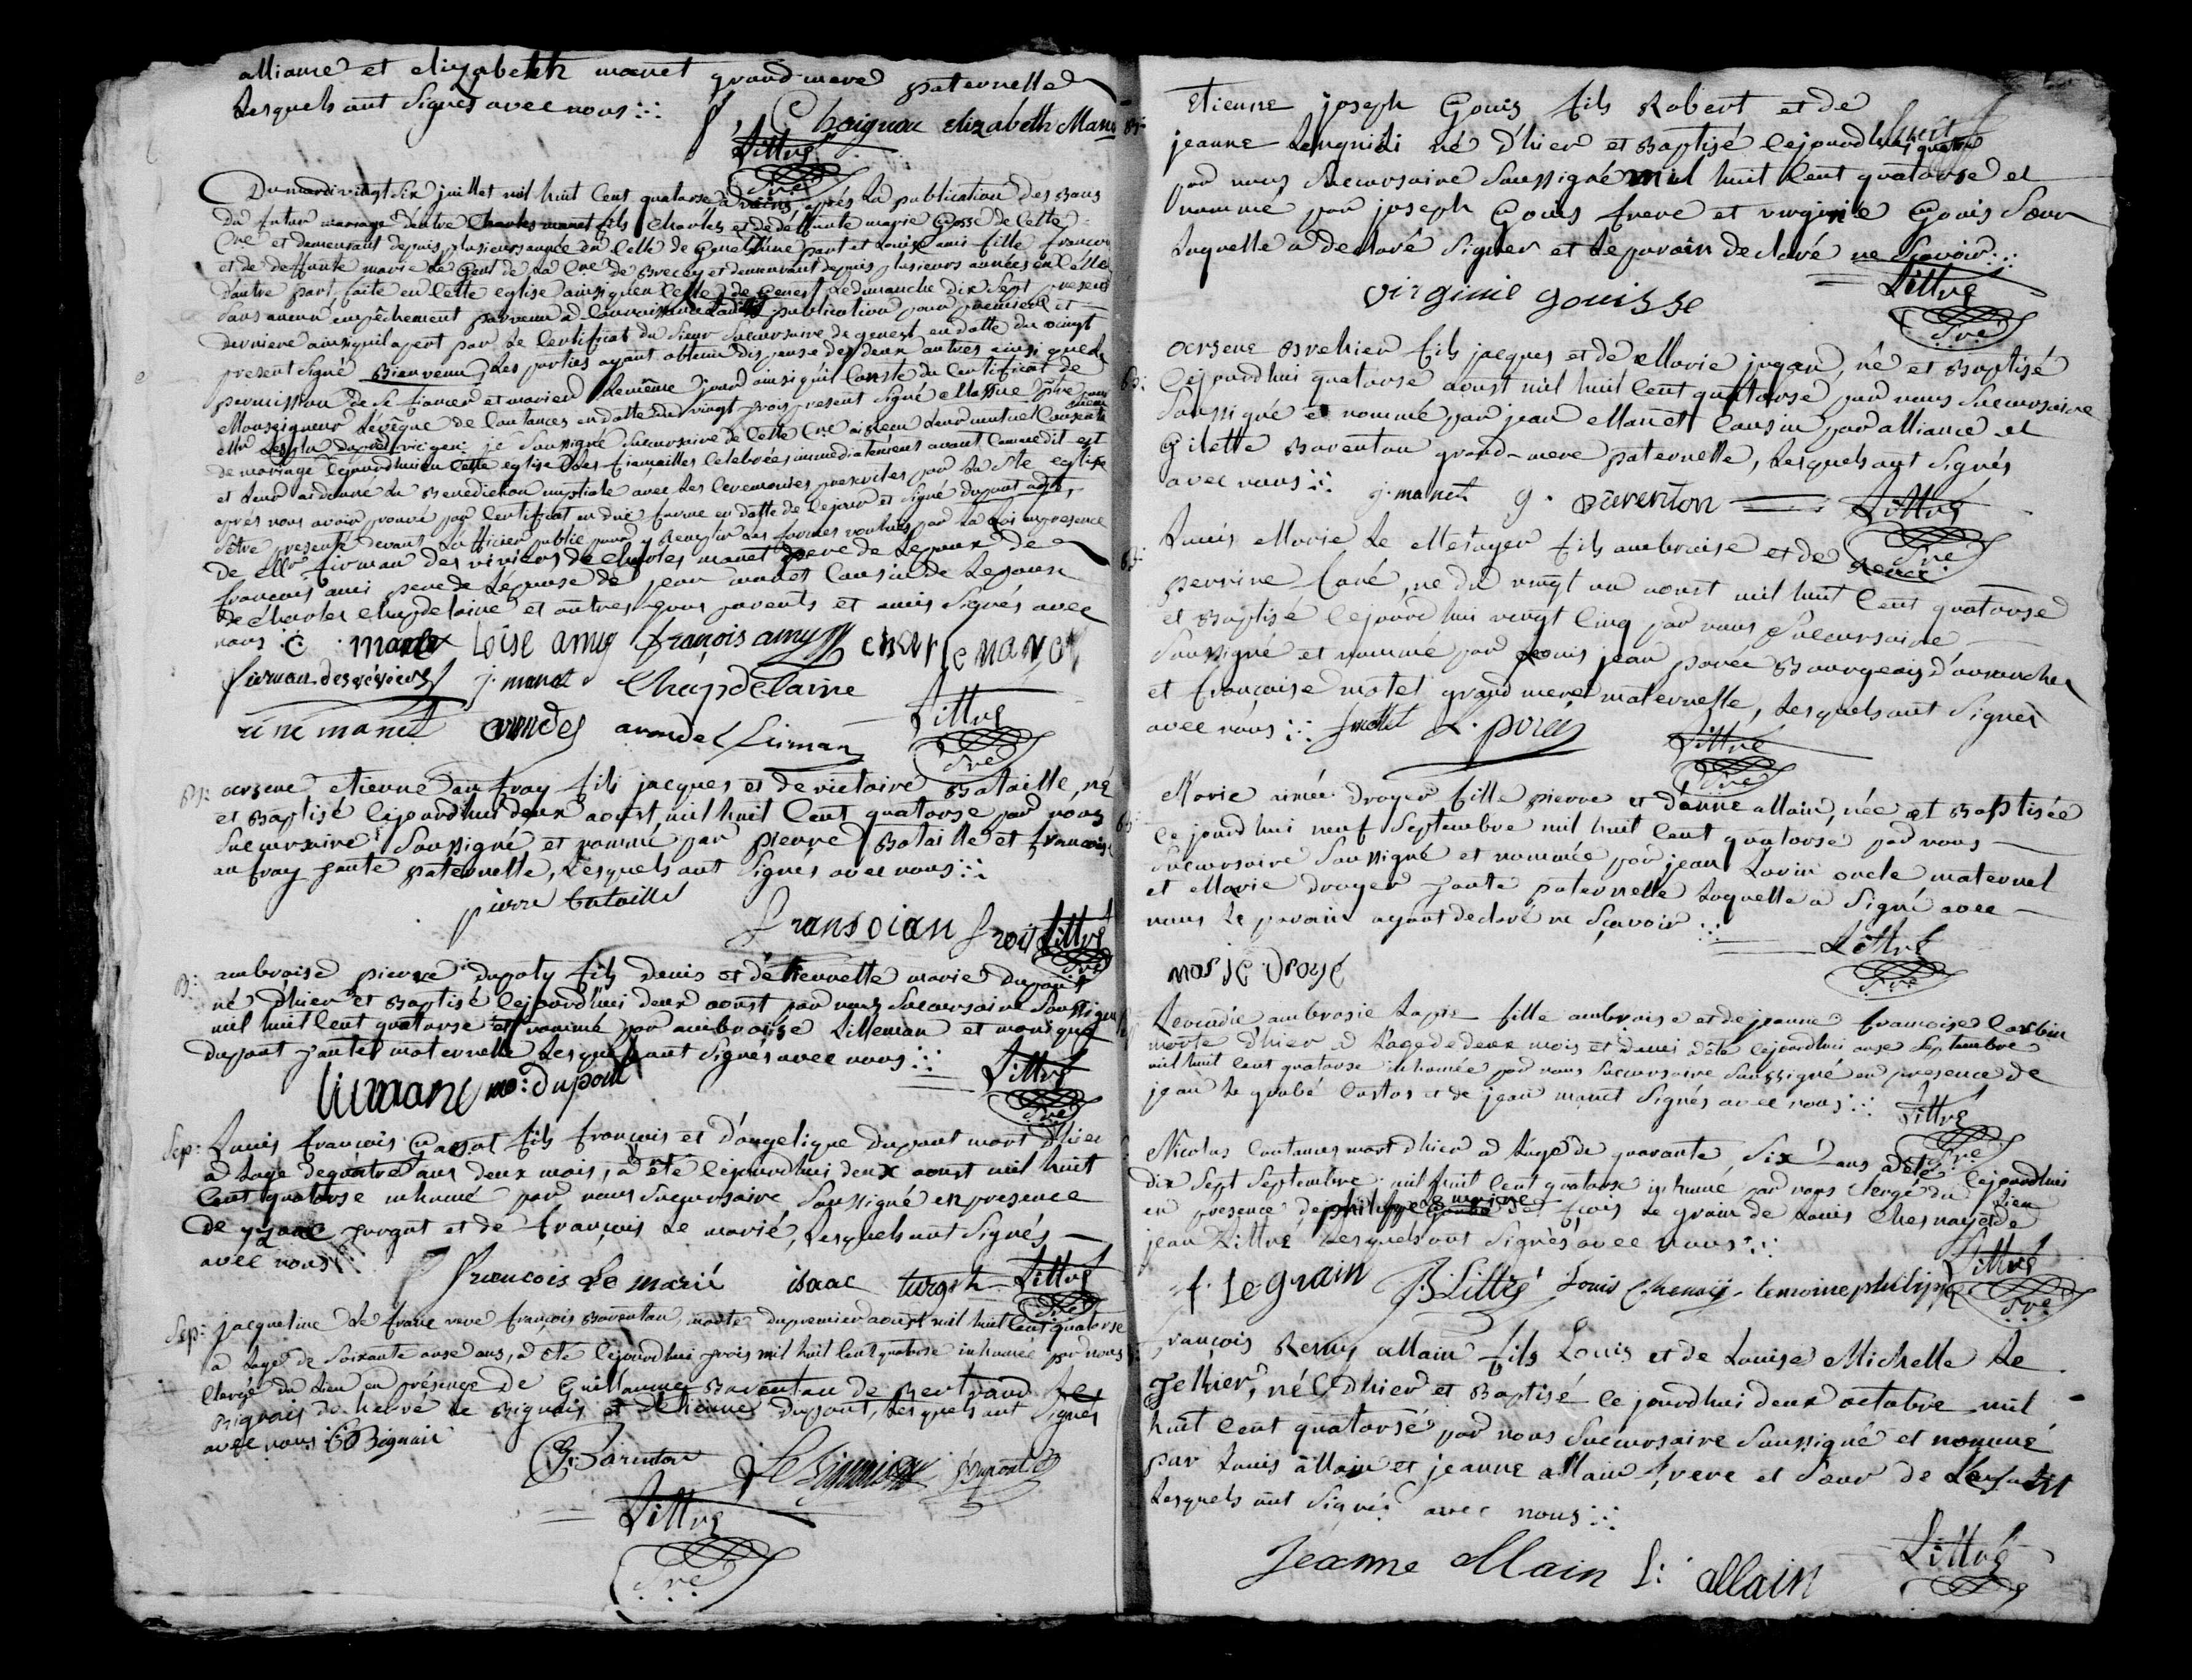 alliance et elizabeth manet grand mere paternelle
Lesquels ont Signés avec nous
Choignou elizabeth Mane
Littré
Sre
Du mardi vingt Six juillet mil huit Cent quatorse après La publication Des Bans
Du futur mariage d'entre Charles manet fils Charles et de deffunte marie Gosse de Cette
Cne et demeurant depuis plusieurs année en Celle de d'une part et Louise ami fille francois
et de deffunte marie Le Gent de La Cne de Brecey et demeurant depuis plusieurs années en Celle
d'autre part, faite en Cette eglise ainsi quen Celle de Genest Le dimanche Dix Sept present
Sans aucun empêchement parvenu a publication pour premiere et
derniere ainsi quil apert par Le Certificat du Sieur Succursaire de genest en datte du vingt
present Signé Bienvenu, Les parties ayant obtenu dispense des deux autres ainsi que de
permission de Se fiancer et marier Le même jour ainsi qu'il Conste du Certificat de
Monseigneur L'évêque de Coutances en datte du vingt trois present Signé
je Soussigné Succursaire de Cette Cne ai recu Leur mutuel Consente
de mariage Cejourdhui en Cette eglise Les fiançailles Celebrées immediatement avant Comme dit est
et Leur ai donné La Benediction nuptiale avec Les Ceremonies prescrites par La Ste eglise
après nous avoir prouvé par Certificat en due forme en datte de Cejour et Signé dupont adjt,
S'être presenté devant L'officier public pour y remplir Les formes voulues par La Loi en presence
De Mr firman des viviers de Charles manet pere de Lepoux de
francois ami pere de Lépouse de jean manet Cousin de Lepoux
De Charles Chapdelaine et autres Leurs parents et amis Signés avec
nous C. manet Loise amy françois amy charle manet
firman des viviers j. manet Chapdelaine
riné manet avodes firman Littré
Sre
B: arsene etienne anfray fils jacques et de victoire Bataille, né
et Baptisé Cejourdhui deux aoust mil huit Cent quatorse par nous
Succursaire Soussigné et nommé par pierre Bataille et francoise
anfray tante paternelle, Lesquels ont Signés avec nous
pierre bataille
fransoian froit Littré
Sre
B: ambroise pierre dupoty fils denis et d'etiennette marie dupont
né d'hier et Baptisé Cejourdhui deux aoust par nous Succursaire Soussigné
mil huit Cent quatorse et nommé par ambroise Lilleman et monique
dupont tante maternelle Lesquels ont Signés avec nous
Littré
mo: dupont
Sre
Sep: Louis francois Gasot fils francois et d'angelique dupont mort d'hier
a Lage de quatre ans deux mois, a été Cejourdhui deux aoust mil huit
Cent quatorse inhumé par nous Succursaire Soussigné en presence
De turgot et de francois Le marié, Lesquels ont Signés
avec nous
francois Le marié isaac turgot Littré
Sre
Sep: jacqueline Le franc veve francois Baventon morte du premier aoust mil huit Cent quatorse
a Lage de Soixante onse ans, a été Cejourdhui trois mil huit Cent quatorse inhumée par nous
Clergé du Lieu en présence de Guillaume Baventon de Bertrand Le
Bignais de hervé Le Bignais et d'etienne Dupont, Lesquels ont Signés
avec nous B Bignais
G. Barenton Le Bignais Dupont
Littré
Sre
Etienne joseph Gouis fils Robert et de
jeanne né D'hier et Baptisé Cejourdhui
par nous Succursaire Soussigné mil huit Cent quatorse et
nommé par joseph Gouis frere et virginie Gouis Sœur
Laquelle a declaré Signer et Le parain declaré ne Scavoir
Littré
virginie gouisse
Sre
B: arsene Brehier fils jacques et de Marie jugan, né et Baptisé
Cejourdhui quatorse aoust mil huit Cent quatorse par nous Succursaire
Soussigné et nommé par jean Manet Cousin par alliance et
Gilette Baventon grand-mere paternelle, Lesquels ont Signés
avec nous j. manet g. Barenton Littré
Sre
B: Louis Marie Le Metayer fils ambroise et de Renee
perrine né du vingt un aoust mil huit Cent quatorse
et Baptisé Cejourdhui vingt Cinq par nous Succursaire
Soussigné et nommé par Louis jean porée Bourgeois d'avranches
et francoise motet grand mere maternelle, Lesquels ont Signés
avec nous f motet L. porée Littré
Sre
B: Marie aimée droyer fille pierre et d'anne allain, née et Baptisée
Ce jourdhui neuf Septembre mil huit Cent quatorse par nous
Succursaire Soussigné et nommée par jean Lorin oncle maternel
et Marie droyer tante paternelle Laquelle a Signé avec
nous Le parain ayant declaré ne Sçavoir
Littré
marie droyé
Sre
ambrosie Lapie fille ambroise et de jeanne francoise Corbin
morte d'hier a Lage de deux mois et demi a été Cejourdhui onse Septembre
mil huit Cent quatorse inhumée par nous Succursaire Soussigné en presence de
jean Le grabé Custos et de jean manet Signés avec nous Littré
Sre
Nicolas Coutances mort d'hier a Lage de quarante Six ans a été Cejourdhui
dix Sept Septembre mil huit Cent quatorse inhumé par nous Clergé du Lieu
en presence de philippe Le moine fcois Le grain de Louis Chesnay et de
jean Littré Lesquels ont Signés avec nous
f. Legrain B. Littré Louis Chenay Lemoine philippe Littré
Sre
François Remy allain fils Louis et de Louise Michelle Le
Tellier, né d'hier et Baptisé Ce jourdhui deux octobre mil
huit Cent quatorse par nous Succursaire Soussigné et nommé
par Louis allain et jeanne allain frere et Sœur de L'enfant
Lesquels ont Signés avec nous
Littré
Jeanne allain L: allain